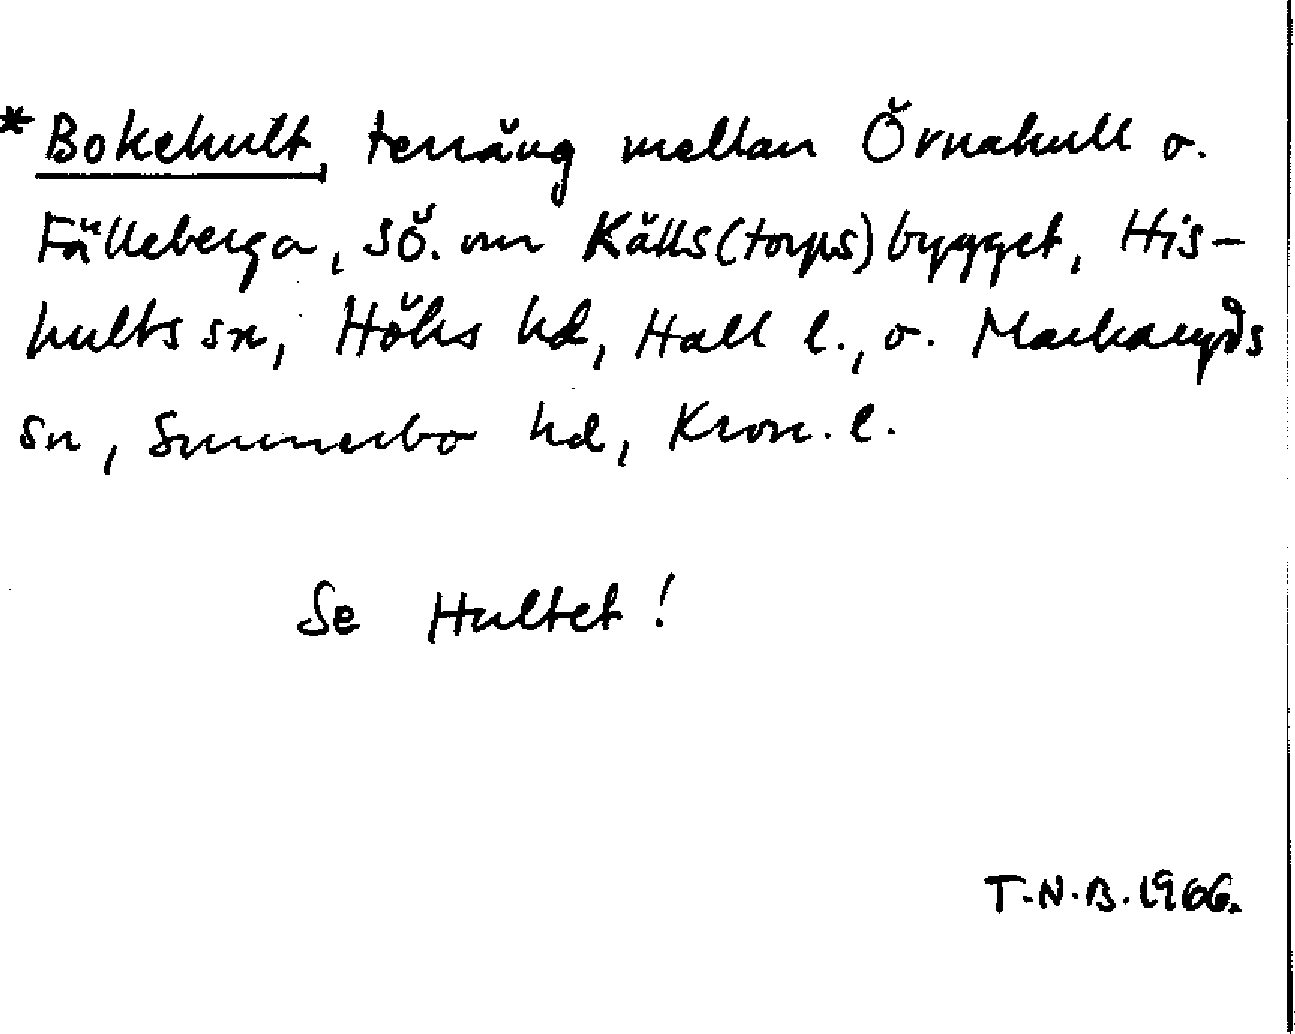 *Bokehult, terräng mellan Örnakull o.
Fälleberga, sö. om Källs(torps)bygget, His-
hults sn, Höks hd, Hall l., o. Markaryds
sn, Sunnerbo hd, Kron. l.
Se Hultet!
T.N.B. 1966.